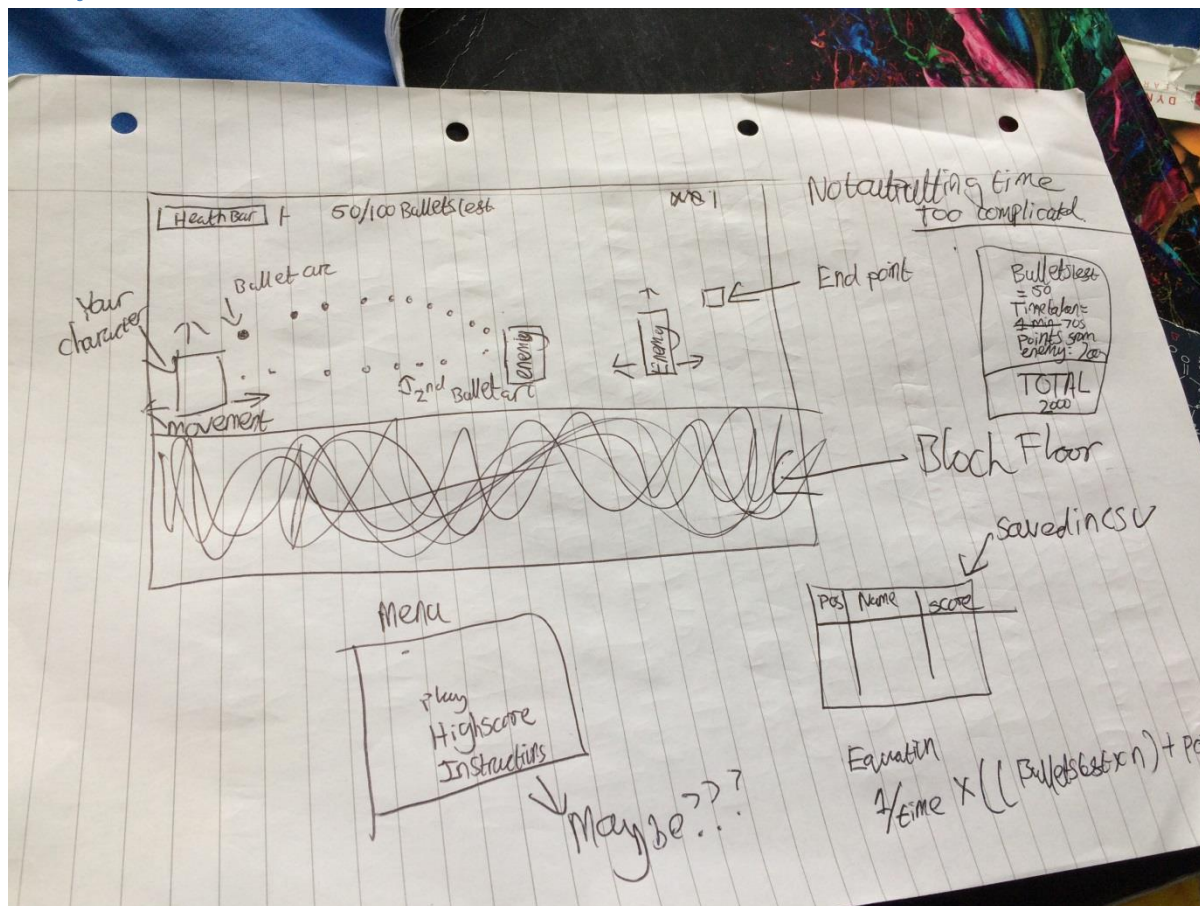 Heath Bar
50/100 Bullets lest
Not outputting time
too complicated
Your
character
Bullet arc
enemy
2nd Bullet arc
Enemy
End point
movement
Bullets lest
= 50
Time taken =
4 min 70s
Points from
enemy: 200
TOTAL
2000
Block Floor
saved in csv
Pos Name score
Menu
Play
Highscore
Instructions
Maybe???
Equation
1/time × ((Bullets lest × n) +